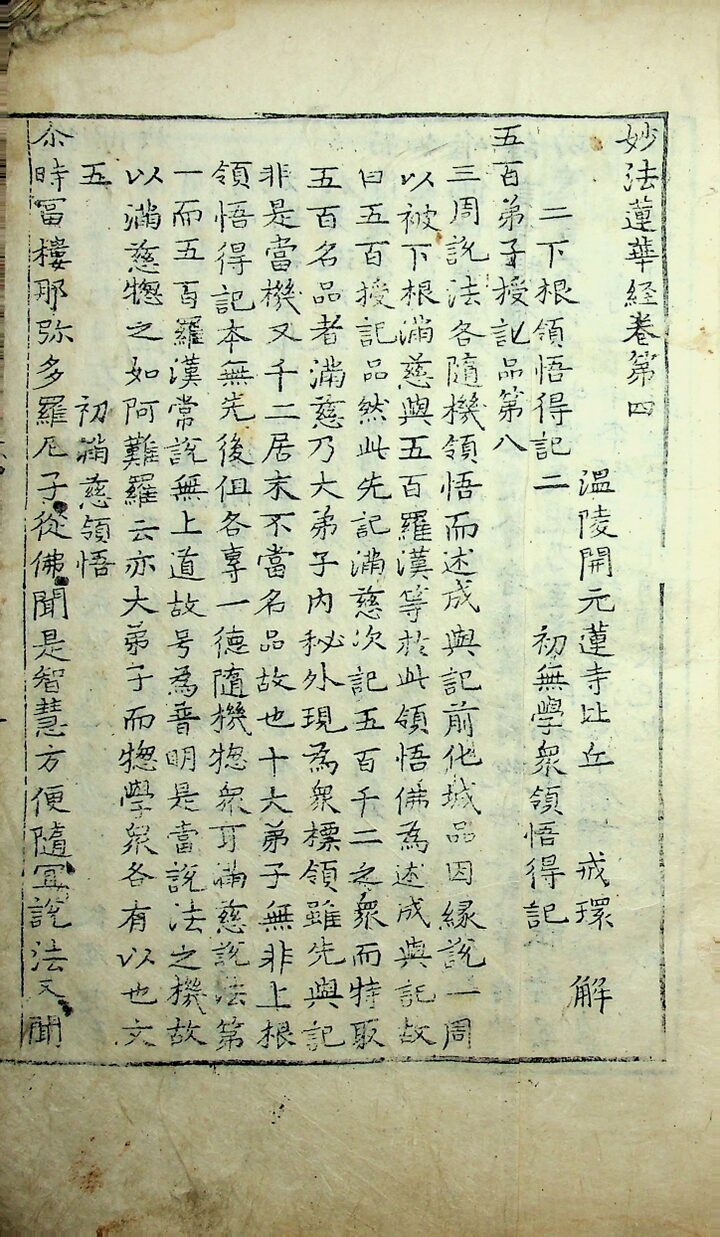 妙法蓮華経卷第四
温陵開元蓮寺比丘 戒環 解
二下根領悟得記二 初無學衆領悟得記
五百弟子授記品第八
三周說法各隨機領悟而述成與記前化城品因緣說一周
以被下根滿慈與五百羅漢等於此領悟佛為述成與記故
曰五百授記品然此先記滿慈次記五百千二之衆而特取
五百名品者滿慈乃大弟子内秘外現為衆標領雖先與記
非是當機又千二居末不當名品故也十大弟子無非上根
領悟得記本無先後但各專一德隨機惣衆耳滿慈說法第
一而五百羅漢常說無上道故号為普明是當說法之機故
以滿慈惣之如阿難羅云亦大弟子而惣學衆各有以也文
五 初滿慈領悟
尒時冨樓那弥多羅尼子從佛聞是智慧方便隨冝說法又聞